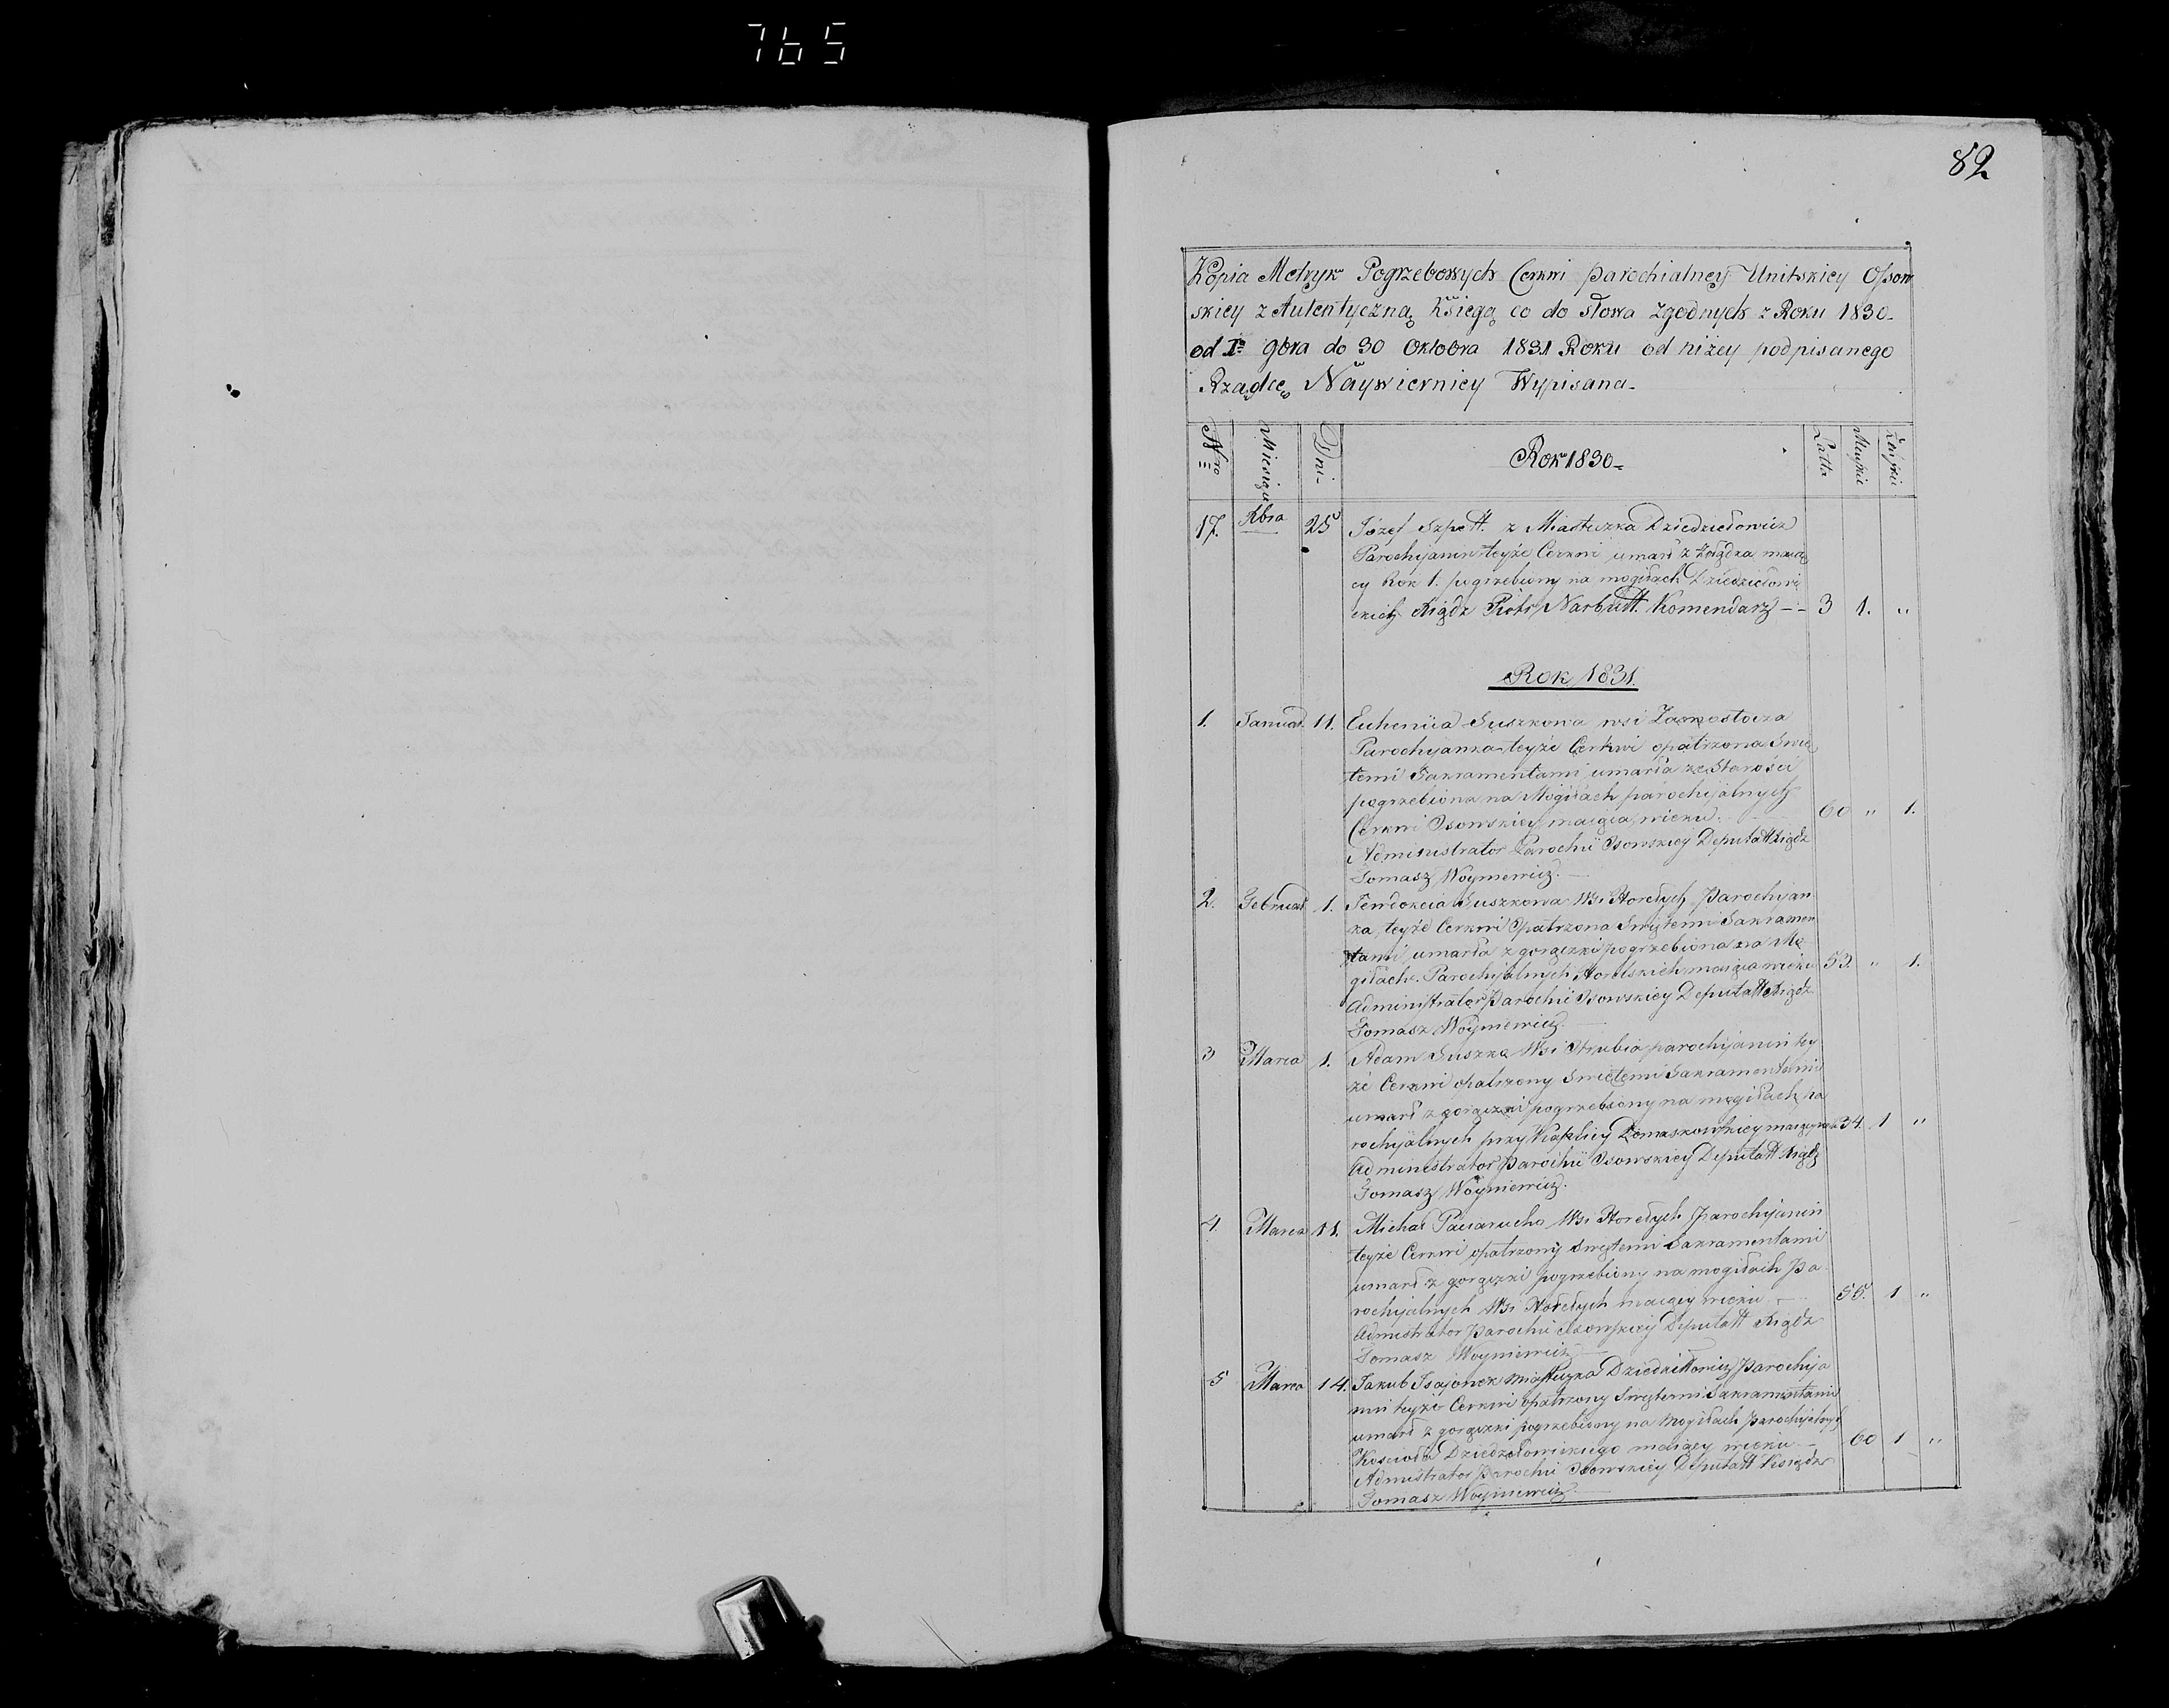 765
82
Kopia Metryk Pogrzebowych Cerkwi Parochialney Unitskiey Ossow
skiey z Autentyczną Księgą co do słowa zgodnych z Roku 1830-
od I= 9bra do 30 Oktobra 1831 Roku od niżey podpisanego
Rządcę Naywierniey Wypisana-
Nro Miesiące Dni- Rok 1830- Latta Męskie Żeńskie
17. Xbra 25 Józef Szpett z Miasteczka Dziedziełowicz
Parochijanin teyże Cerkwi umarł z maią
cy Rok 1. pogrzebiony na mogiłach Dziedziełowi
ckich Xiądz Piotr Narbutt Komendarz -- 3 1. "
Rok 1831.
1. Januar. 11. Euhenija Suszkowa wsi Zamostocza
Parochijanka teyże Cerkwi opatrzona Swię
temi Sakramentami umarła ze Starości
pogrzebiona na Mogiłach parochijalnych
Cerkwi Osowskiey maiąca wieku. 60 " 1.
Administrator Parochii Osowskiey Deputatt Xiądz
Tomasz Woyniewicz.
2. Februar. 1. Jewdokcia Suszkowa Wsi Horełych Parochijan
ka teyże Cerkwi Opatrzona Swiętemi Sakramen
tami umarła z gorączki pogrzebiona na Mo
giłach Parochijalnych Horelskich maiąca wieku 53. " 1.
Administrator Parochii Osowskiey Deputatt Xiądz
Tomasz Woyniewicz.
3 Marca 1. Adam Suszko Wsi parochijanin tey
że Cerkwi opatrzony Swiętemi Sakramentami
umarł z gorączki pogrzebiony na mogiłach pa
rochijalnych przy Kaplicy Domaszkowskiey maiący 34. 1 "
Administrator Parochii Osowskiey Deputatt Xiądz
Tomasz Woyniewicz.
4. Marca 11. Michał Wsi Horełych Parochijanin
teyże Cerkwi opatrzony Swiętemi Sakramentami
umarł z gorączki pogrzebiony na mogiłach Pa
rochijalnych Wsi Horełych maiący wieku 55. 1 "
Admistrator Parochii Osowskiey Deputatt Xiądz
Tomasz Woyniewicz
5 Marca 14. Jakub Isajonek miasteczka Dziedziłowicz Parochija
nin teyże Cerkwi opatrzony Swiętemi Sakramentami
umarł z gorączki pogrzebiony na Mogiłach Parochijalnych
Kościoła Dziedziełowickiego maiący wieku 60 1 "
Admistrator Parochii Osowskiey Deputatt Ksiądz
Tomasz Woyniewicz.